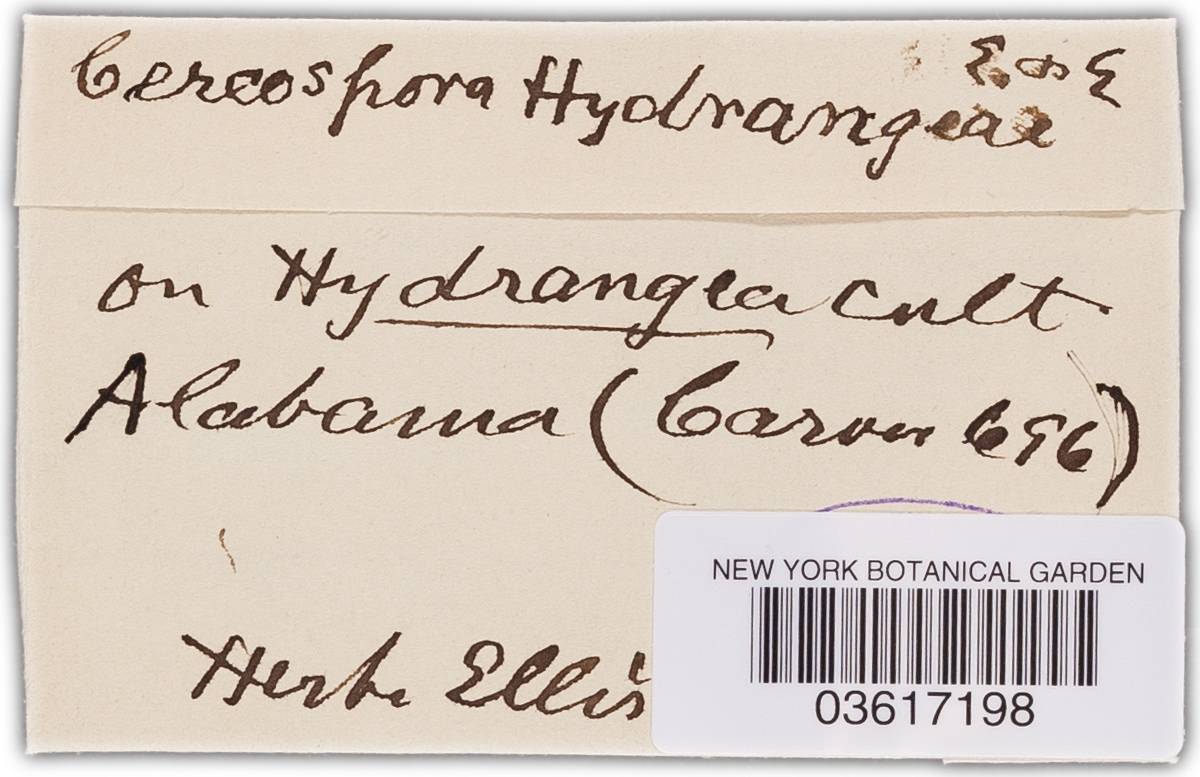 Cercospora Hydrangeae E & E
on Hydrangea cult.
Alabama (Carver 696)
Herb. Ellis
NEW YORK BOTANICAL GARDEN
03617198